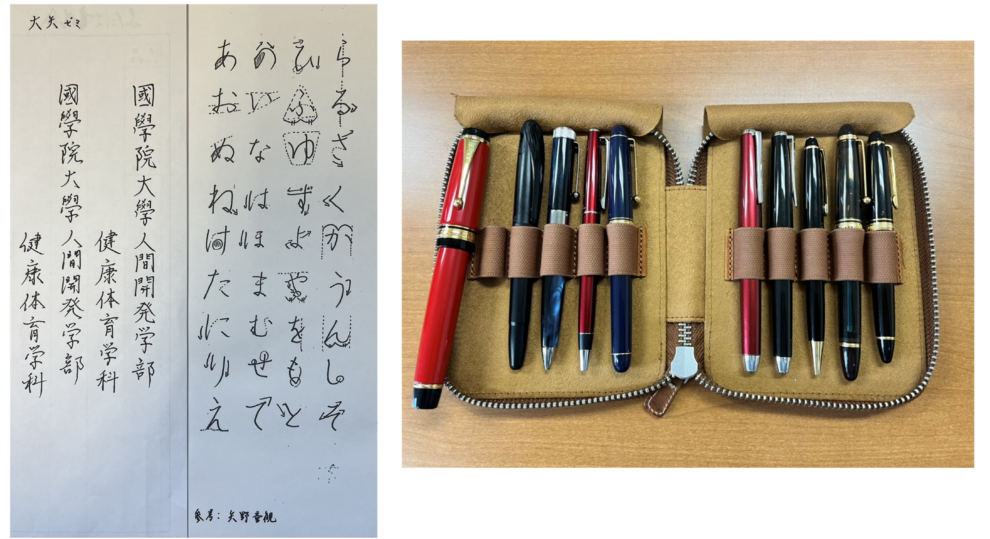 大矢ゼミ
國學院大學人間開発学部
健康体育学科
國學院大學人間開発学部
健康体育学科
らるさくかうんしそ
ひふゆすよやをもと
めいなはほまむせて
あおぬねたにりえ
参考：矢野童観